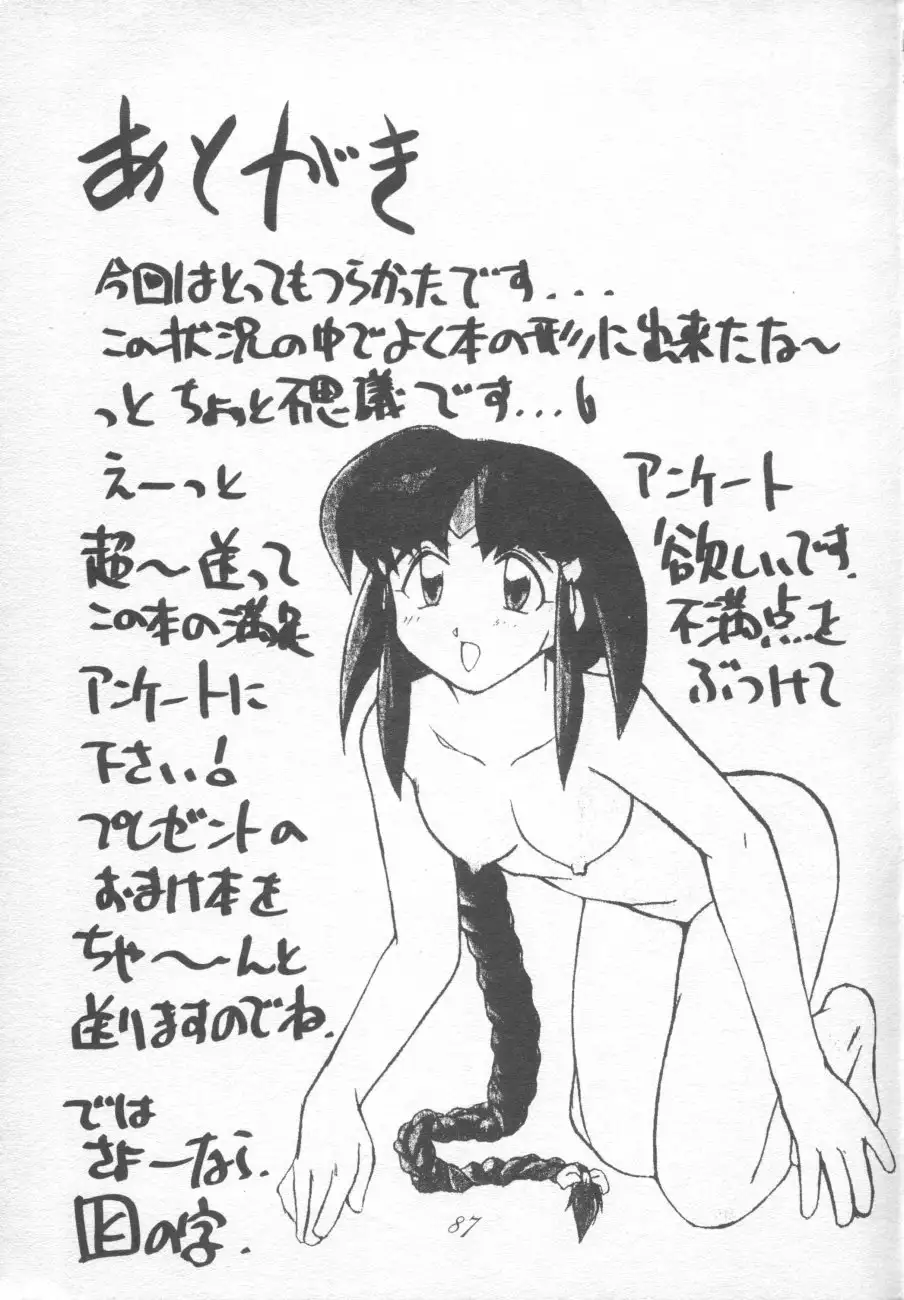 あとがき
今回はとってもつらかったです...
この状況の中でよく本の形に出来たな〜
っとちょっと不思議です...。
えーっと アンケート
超〜送って 欲しいです。
この本の満足 不満点を
アンケートに ぶつけて
下さい!
プレゼントの
おまけ本を
ちゃ〜〜んと
送りますのでね.
では
さよーなら.
目の字.
87